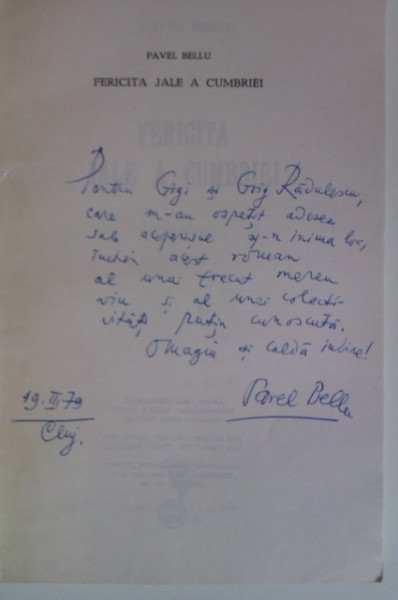 PAVEL BELLU
FERICITA JALE A CUMBRIEI
FERICITA
JALE A CUMBRIEI
Pentru Gigi și Grig Rădulescu,
care m-au ospețit adesea
sub acoperișul și-n inima lor,
închin acest roman
al unui trecut mereu
viu și al unei colecti-
vități puțin cunoscută.
Omagiu și caldă iubire!
Pavel Bellu
19.III.79
Cluj.